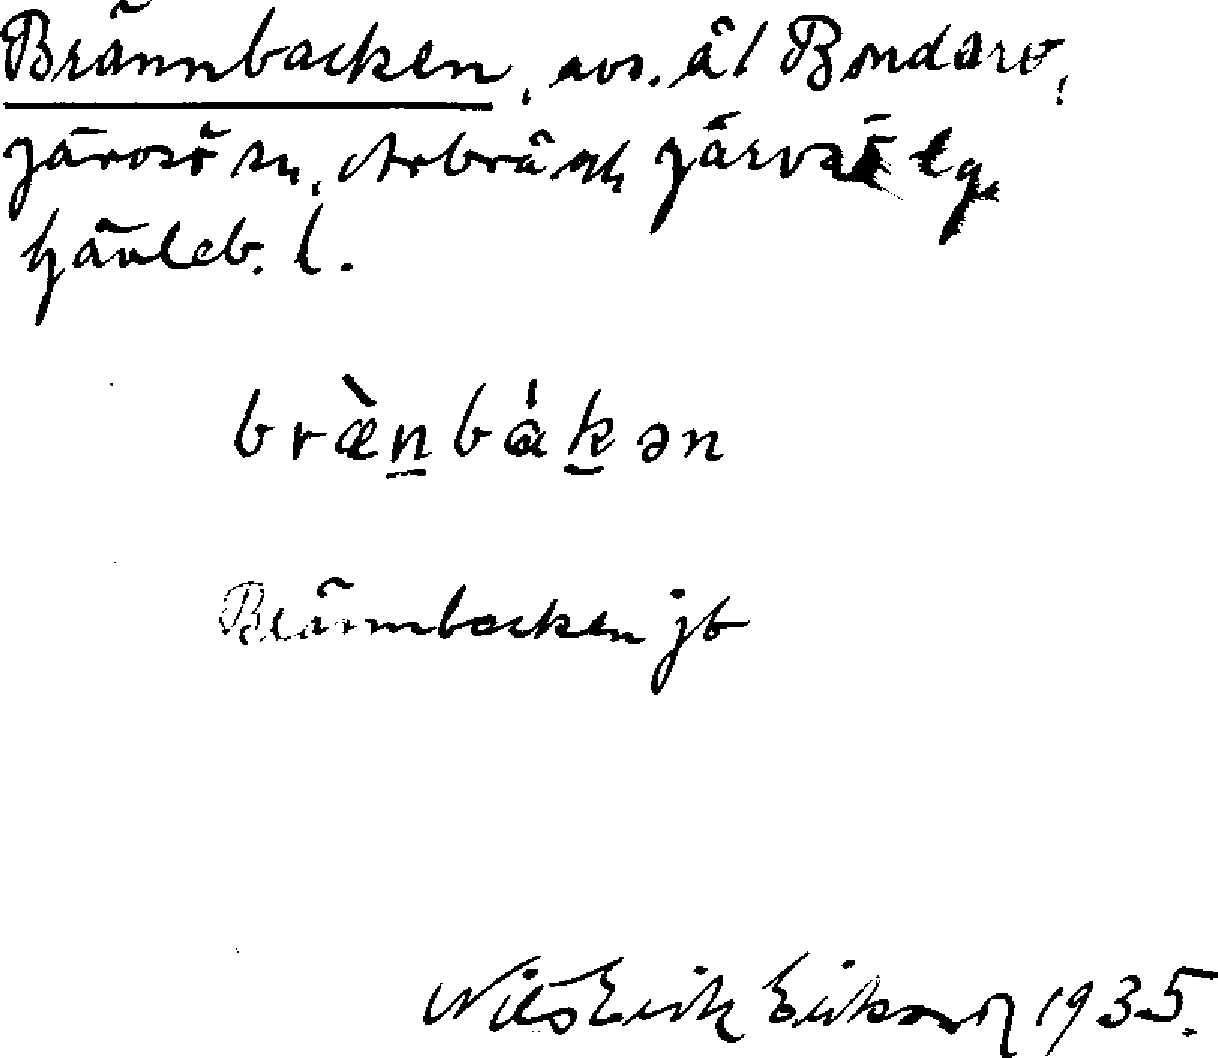 Brännbacken, avs. å 1 Bondarv,
Järvsö sn, Arbrå och Järvsö tg,
Gävleb. l.
bræ̀n̲bák̲ən
Brännbacken jb
Nils Erik Erikson 1935.